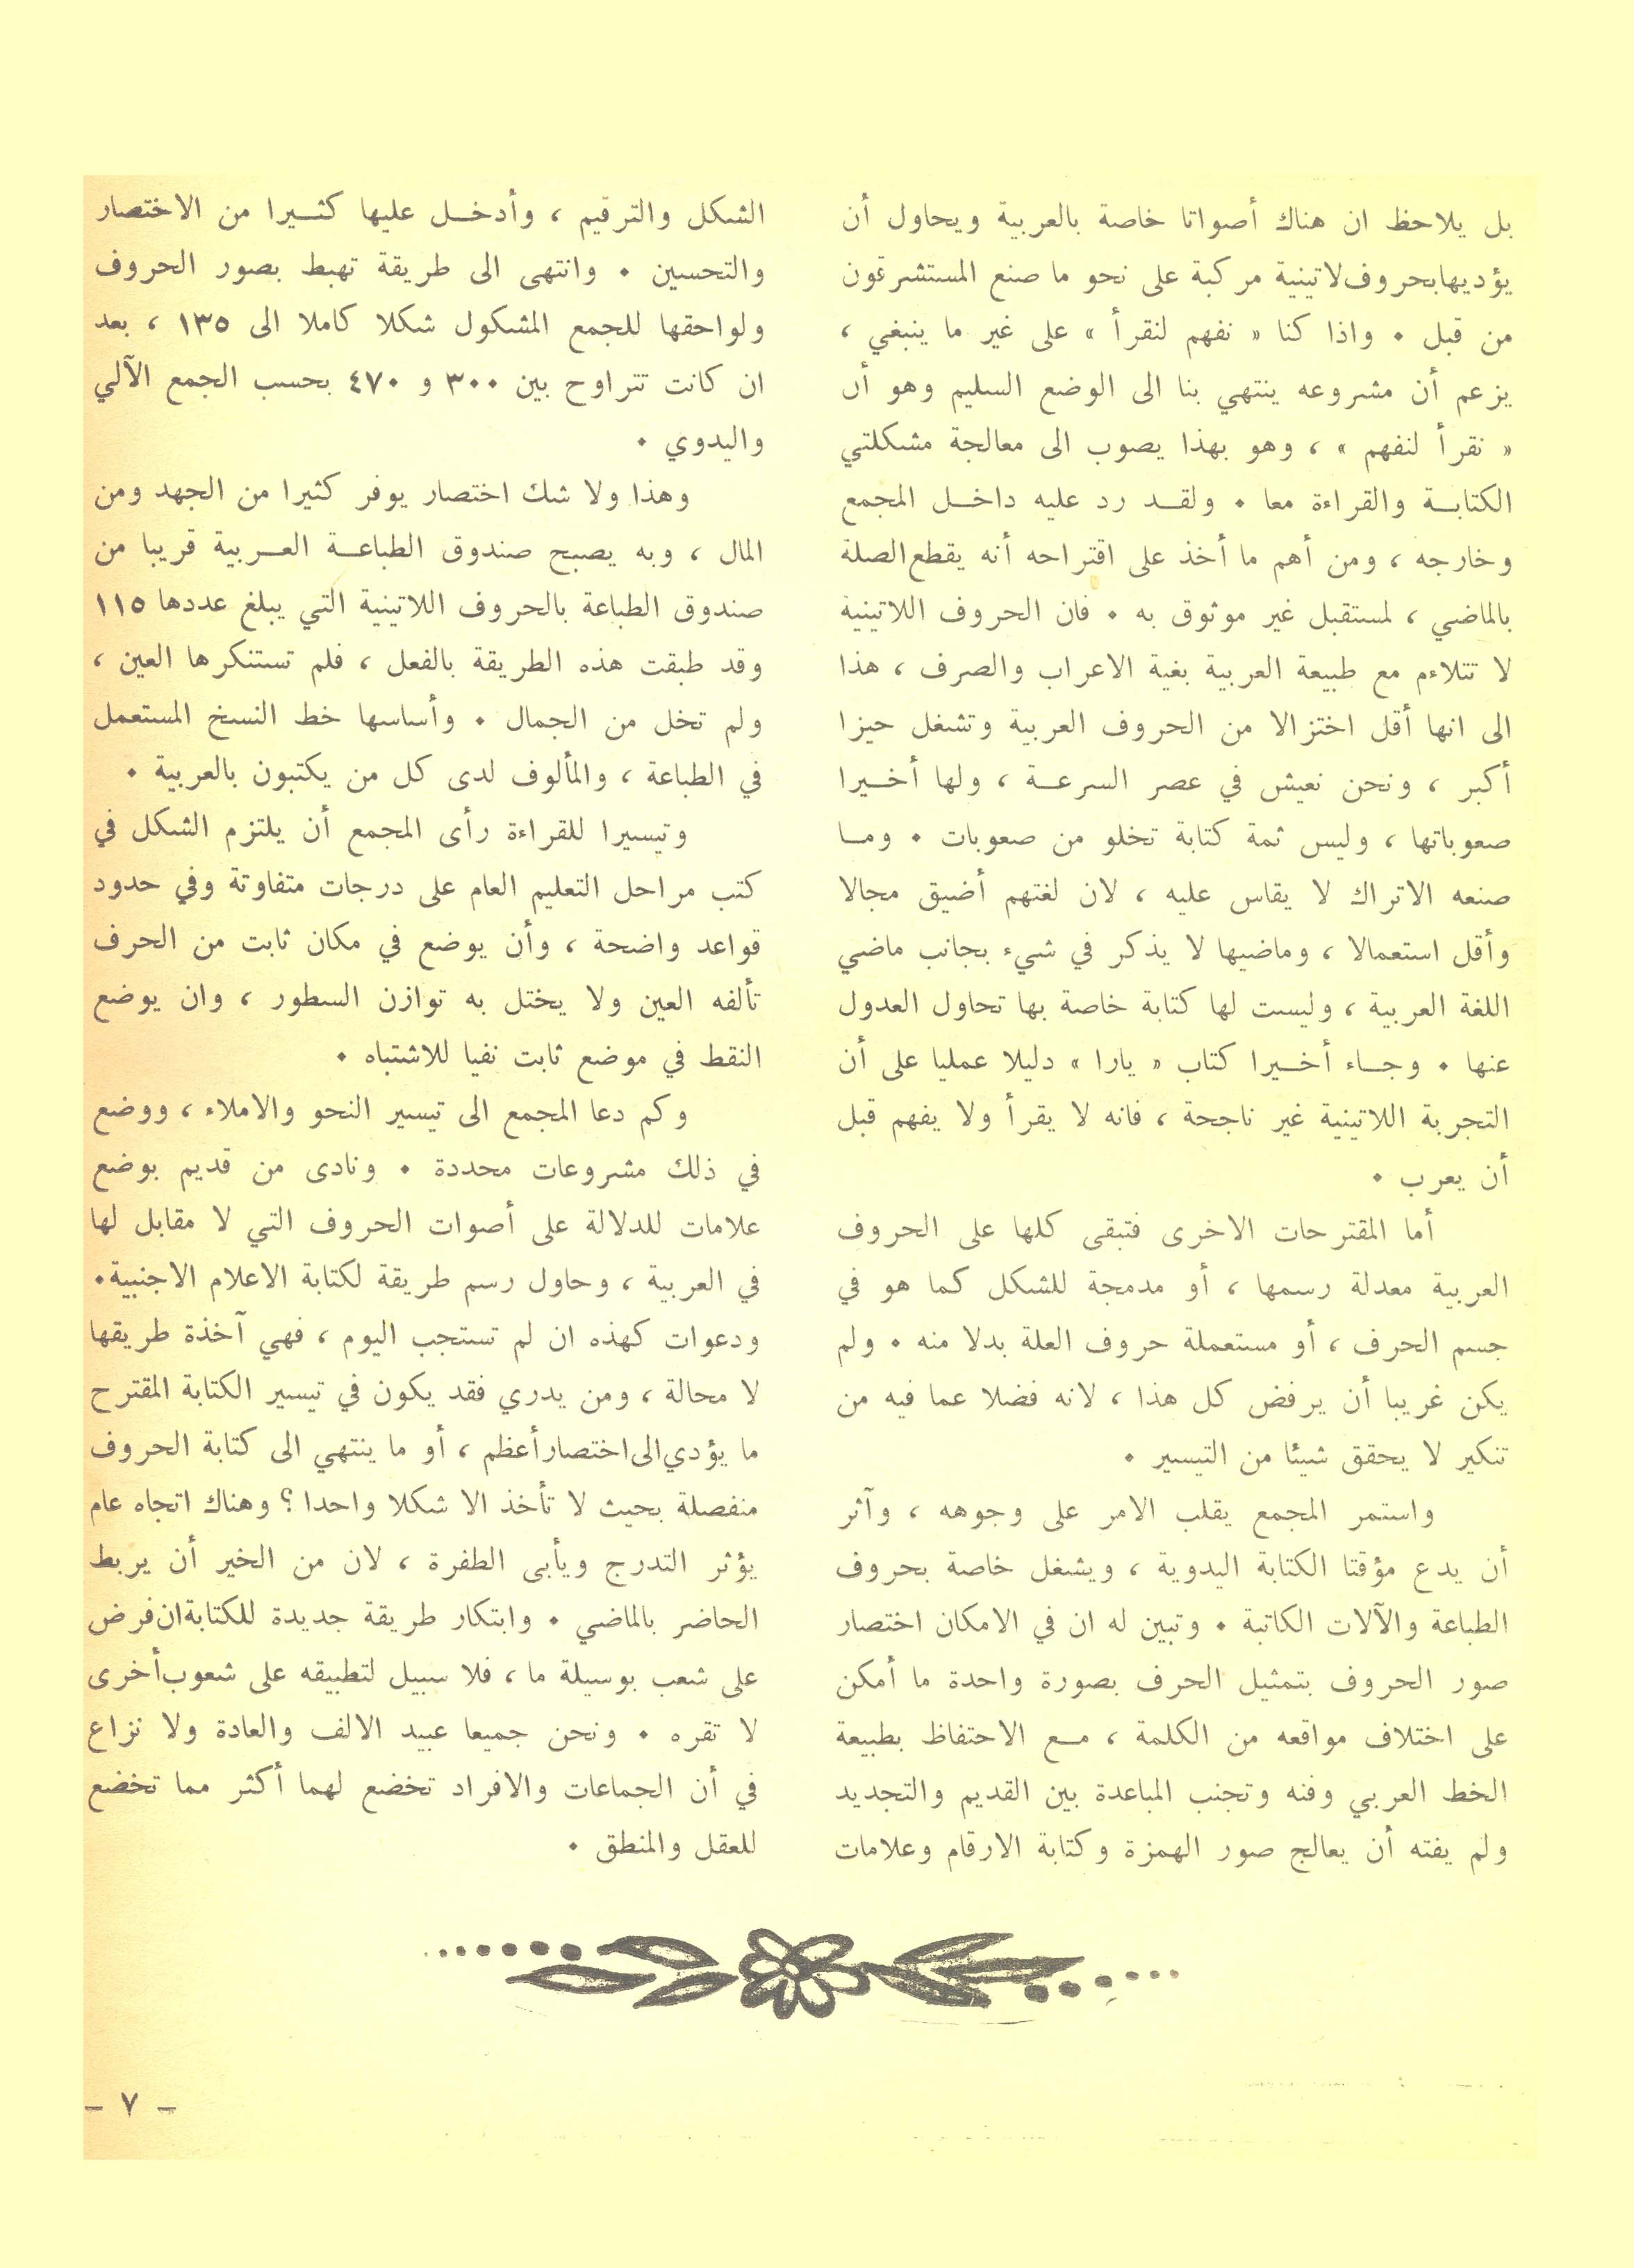 بل يلاحظ ان هناك أصواتا خاصة بالعربية ويحاول أن
يؤديها بحروف لاتينية مركبة على نحو ما صنع المستشرقون
من قبل . واذا كنا « نفهم لنقرأ » على غير ما ينبغي ،
يزعم أن مشروعه ينتهي بنا الى الوضع السليم وهو أن
« نقرأ لنفهم » ، وهو بهذا يصوب الى معالجة مشكلتي
الكتابة والقراءة معا . ولقد رد عليه داخل المجمع
وخارجه ، ومن أهم ما أخذ على اقتراحه أنه يقطع الصلة
بالماضي ، لمستقبل غير موثوق به . فان الحروف اللاتينية
لا تتلاءم مع طبيعة العربية بغية الاعراب والصرف ، هذا
الى انها أقل اختزالا من الحروف العربية وتشغل حيزا
أكبر ، ونحن نعيش في عصر السرعة ، ولها أخيرا
صعوباتها ، وليس ثمة كتابة تخلو من صعوبات . وما
صنعه الاتراك لا يقاس عليه ، لان لغتهم أضيق مجالا
وأقل استعمالا ، وماضيها لا يذكر في شيء بجانب ماضي
اللغة العربية ، وليست لها كتابة خاصة بها تحاول العدول
عنها . وجاء أخيرا كتاب « يارا » دليلا عمليا على أن
التجربة اللاتينية غير ناجحة ، فانه لا يقرأ ولا يفهم قبل
أن يعرب .
أما المقترحات الاخرى فتبقى كلها على الحروف
العربية معدلة رسمها ، أو مدمجة للشكل كما هو في
جسم الحرف ، أو مستعملة حروف العلة بدلا منه . ولم
يكن غريبا أن يرفض كل هذا ، لانه فضلا عما فيه من
تنكير لا يحقق شيئا من التيسير .
واستمر المجمع يقلب الامر على وجوهه ، وآثر
أن يدع مؤقتا الكتابة اليدوية ، ويشغل خاصة بحروف
الطباعة والآلات الكاتبة . وتبين له ان في الامكان اختصار
صور الحروف بتمثيل الحرف بصورة واحدة ما أمكن
على اختلاف مواقعه من الكلمة ، مع الاحتفاظ بطبيعة
الخط العربي وفنه وتجنب المباعدة بين القديم والتجديد
ولم يفته أن يعالج صور الهمزة وكتابة الارقام وعلامات
الشكل والترقيم ، وأدخل عليها كثيرا من الاختصار
والتحسين . وانتهى الى طريقة تهبط بصور الحروف
ولواحقها للجمع المشكول شكلا كاملا الى ١٣٥ ، بعد
ان كانت تتراوح بين ٣٠٠ و ٤٧٠ بحسب الجمع الآلي
واليدوي .
وهذا ولا شك اختصار يوفر كثيرا من الجهد ومن
المال ، وبه يصبح صندوق الطباعة العربية قريبا من
صندوق الطباعة بالحروف اللاتينية التي يبلغ عددها ١١٥
وقد طبقت هذه الطريقة بالفعل ، فلم تستنكرها العين ،
ولم تخل من الجمال . وأساسها خط النسخ المستعمل
في الطباعة ، والمألوف لدى كل من يكتبون بالعربية .
وتيسيرا للقراءة رأى المجمع أن يلتزم الشكل في
كتب مراحل التعليم العام على درجات متفاوتة وفي حدود
قواعد واضحة ، وأن يوضع في مكان ثابت من الحرف
تألفه العين ولا يختل به توازن السطور ، وان يوضع
النقط في موضع ثابت نفيا للاشتباه .
وكم دعا المجمع الى تيسير النحو والاملاء ، ووضع
في ذلك مشروعات محددة . ونادى من قديم بوضع
علامات للدلالة على أصوات الحروف التي لا مقابل لها
في العربية ، وحاول رسم طريقة لكتابة الاعلام الاجنبية .
ودعوات كهذه ان لم تستجب اليوم ، فهي آخذة طريقها
لا محالة ، ومن يدري فقد يكون في تيسير الكتابة المقترح
ما يؤدي الى اختصار أعظم ، أو ما ينتهي الى كتابة الحروف
منفصلة بحيث لا تأخذ الا شكلا واحدا ؟ وهناك اتجاه عام
يؤثر التدرج ويأبى الطفرة ، لان من الخير أن يربط
الحاضر بالماضي . وابتكار طريقة جديدة للكتابة ان فرض
على شعب بوسيلة ما ، فلا سبيل لتطبيقه على شعوب أخرى
لا تقره . ونحن جميعا عبيد الالف والعادة ولا نزاع
في أن الجماعات والافراد تخضع لهما أكثر مما تخضع
للعقل والمنطق .
– ٧ –